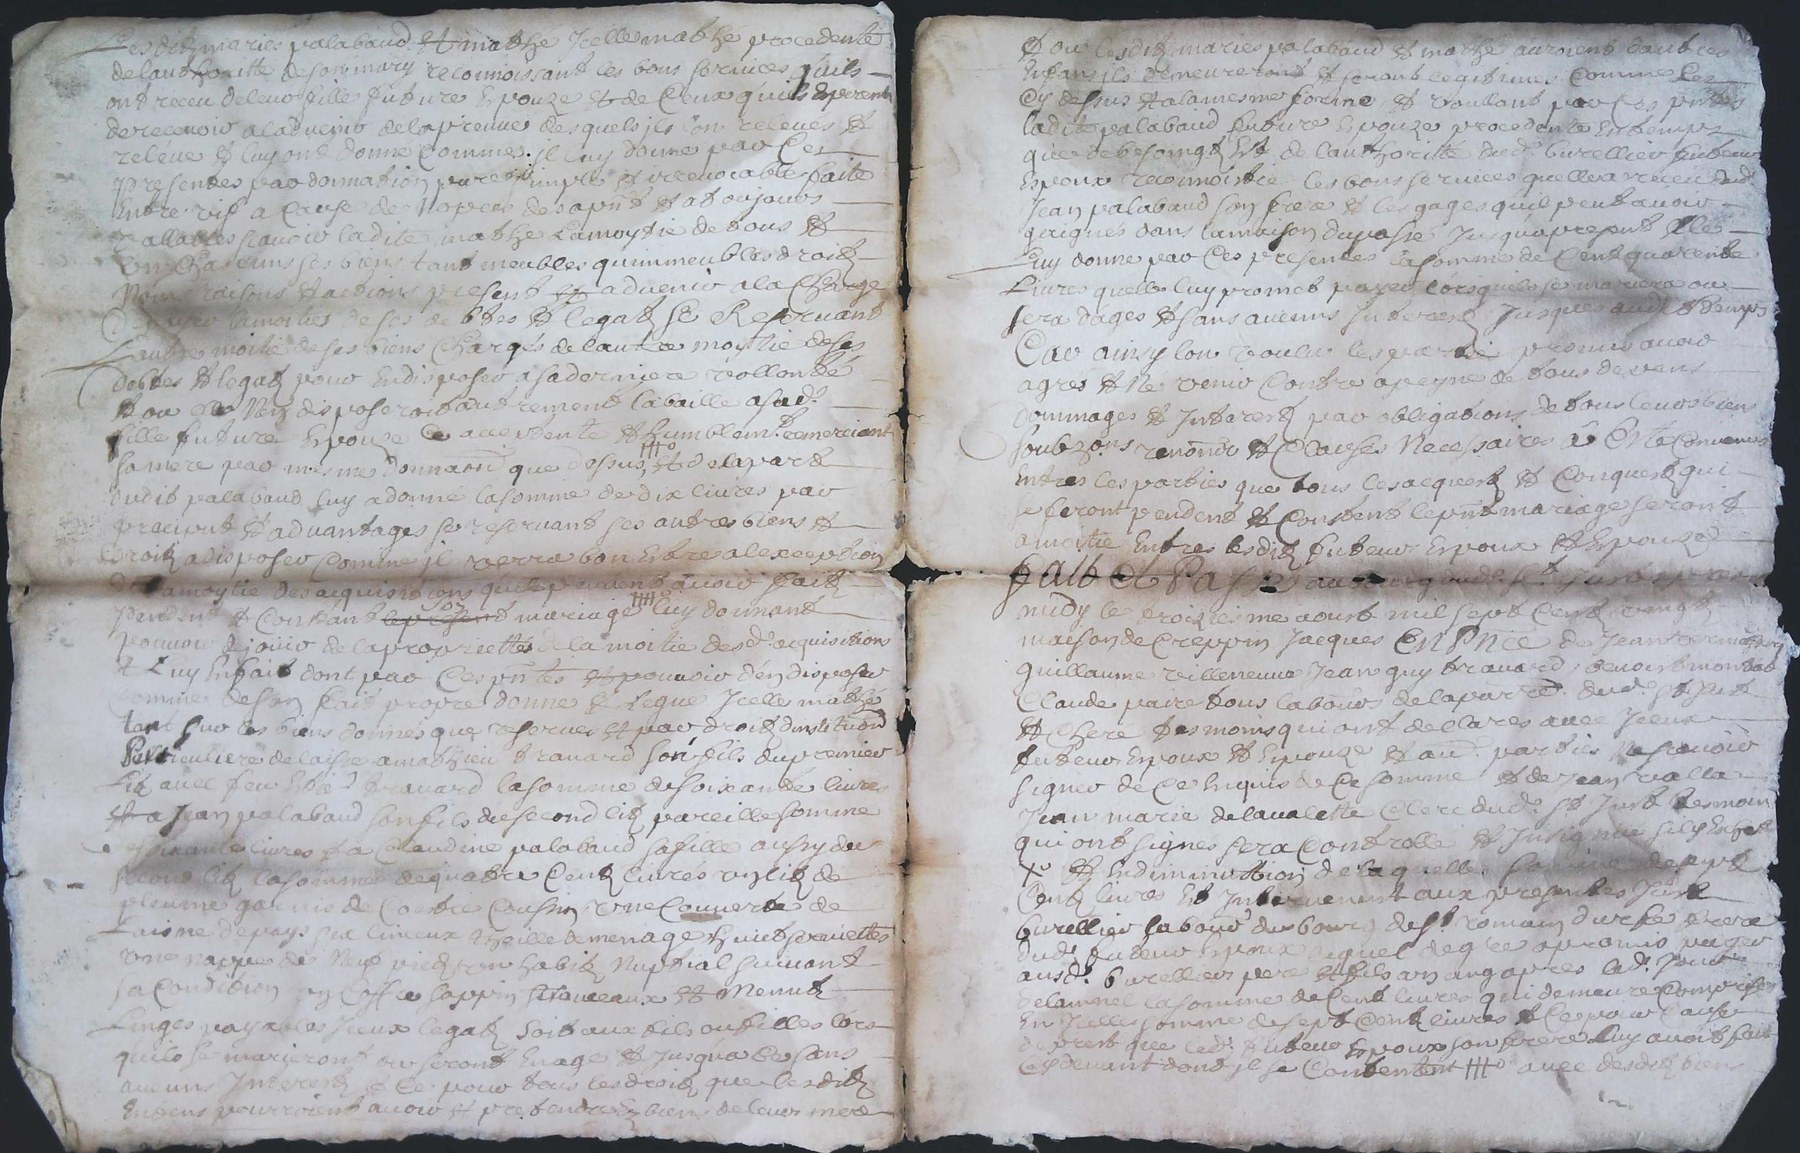 Lesditz maries palabaud et mathe Icelle mathe procedente
de lauthoritte de son mary reconnoissant les bons services quils
ont receu de leur fille future Epouze et de Ceux quils Esperent
de recevoir a ladvenir de la preuve desquels ils lon releves et
releve et luy ont donne Comme il luy donne par Ces
presentes par donnation pure simple et irrevocable faite
Entre vifs a Cause de nopces des a pnt et a toujours
vallables scavoir ladite mathe La moytie de tous et
un Chascuns ses biens tant meubles quimmeubles droitz
Noms raisons et actions present et advenir a la Charge
de payer la moitie de ses debtes et legatz se Reservant
Lautre moitie de ses biens Charges de lautre moytie de ses
debtes et legatz pour En disposer a sa derniere vollonte
et ou elle Nen disposeroit autrement la baille a sad.
fille future Epouze Ce acceptante et humblemt remerciant
sa mere par mesme donnaon que dessus et de la part
dudit palabaud luy a donne la somme de dix livres par
preciput et advantages se reservant ses autres biens et
droitz a disposer Comme il verra bon Estre a lexception
de la moytie des acquisitions quils peuvent avoir fait
pendant et Constant le present mariage luy donnant
pouvoir de jouir de la propriettes de la moitie desd. acquisitions
et luy En fait dont par Ces pntes et pouvoir den disposer
Comme de son fait propre donne et legue Icelle mathe
tant sur les biens donnes que reserves et par droit dinstitution
particuliere delaisse a mathieu travard son fils du premier
Lit avec feu travard la somme de soixante livres
Et a Jean palabaud son fils du second lit pareille somme
de soixante livres et a Claudine palabaud sa fille aussy du
second lit la somme de quatre Cent livres un lit de
plume garnis de Contre Coussin une Couverte de
Laisne de pays six linceux theille de menage huict serviettes
une nappe de Neuf pieds un habit Nuptial suivant
sa Condition un Coffre sappin six nouveaux et Menutz
Linges payables Iceux legatz soit aux fils ou filles lors
quils se marieront ou seront En age et jusqua Ce sans
aucuns Interestz et Ce pour tous les droitz que lesditz
Enfans pourroient avoir et pretendre es biens de leur mere
Et ou lesditz maries palabaud et mathe auroient dautres
Enfans ils demeureront et seront legitimes Comme les
Cy dessus et a la mesme forme et voullant par Ces pntes
ladite palabaud future Epouze procedente En temps
que de besoingtz Est de lauthoritte dud. burellier futeur
Epoux reconnoistre les bons services quelle a receu dud.
Jean palabaud son frere et les gages quil peut avoir
gaignes dans la maison du passe Jusqua present Elle
Luy donne par Ces presentes la somme de Cent quarente
Livres quelle luy promet payer lorsquil se mariera ou
sera dages et sans aucuns Interestz Jusques aud. temps
Car ainsy lon voulu les parties promis avoir
agres et Ne venir Contre a peyne de tous despens
dommages et Interestz par obligations de tous leurs biens
soubz ons renonon et Clauses Necessaires a Este Convenus
Entres les parties que tous les acquestz et Conquestz qui
se feront pendent et Constent le pnt mariage seront
a moitie Entres lesditz futeur Epoux et Epouze
fait et Passe au bourg dud. St Just apres
midy le troiziesme aoust mil sept Cent vingt
maison de Creppin Jacques En Pnce de Jean
guillaume villeneuve Jean guy travard benoist montas
Claude paire tous labours de la parre dud. St Just
et Chere tesmoins qui ont declares avec Iceux
futeur Epoux et Epouze et au. parties Ne scavoir
signer de Ce Enquis de Ce somme et de Jean valla
Jean marie de la valette Clerc dud. St Just tesmoin
qui ont signes sera Controlle et Insignue sil y Echet
Xo Et En diminution de laquelle somme de sept
Cent livre Est Intervenent aux presentes Just
burellier labour du bourg de St romain durfe frere
dud. futeur Epoux lequel de gre a promis payer
ausd. burelliers pere et fils an an apres lad. Jour
de lannel la somme de Cent livres qui demeure Comprise
En Icelle somme de sept Cent livres et Ce pour Cause
de prest que led. futeur Epoux son frere luy avoit fait
Cy devant dont il se Contentent avec desditz biens